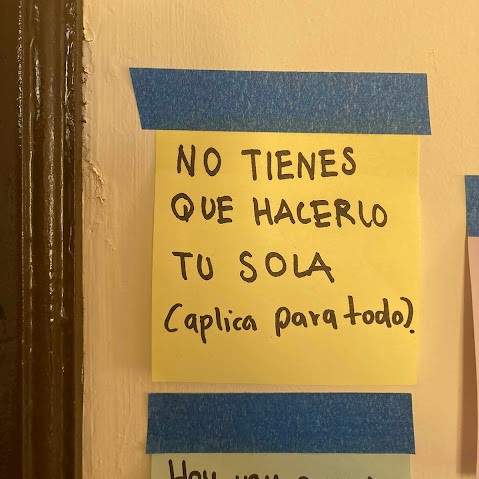 NO TIENES
QUE HACERLO
TU SOLA
(aplica para todo).
Hoy